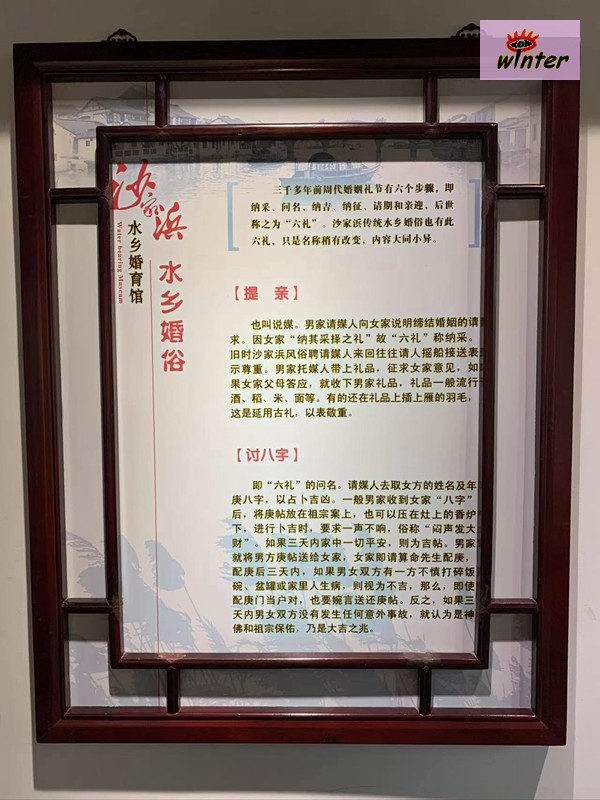 winter
沙家浜
水乡婚育馆
Water bearing Museum
水乡婚俗
三千多年前周代婚姻礼节有六个步骤，即
纳采、问名、纳吉、纳征、请期和亲迎，后世
称之为“六礼”。沙家浜传统水乡婚俗也有此
六礼，只是名称稍有改变，内容大同小异。
【提 亲】
也叫说媒。男家请媒人向女家说明缔结婚姻的请
求。因女家“纳其采择之礼”故“六礼”称纳采。
旧时沙家浜风俗聘请媒人来回往往请人摇船接送表
示尊重。男家托媒人带上礼品，征求女家意见，如
果女家父母答应，就收下男家礼品，礼品一般流行
酒、稻、米、面等。有的还在礼品上插上雁的羽毛，
这是延用古礼，以表敬重。
【讨八字】
即“六礼”的问名。请媒人去取女方的姓名及年
庚八字，以占卜吉凶。一般男家收到女家“八字”
后，将庚帖放在祖宗案上，也可以压在灶上的香炉
下，进行卜吉时，要求一声不响，俗称“闷声发大
财”。如果三天内家中一切平安，则为吉帖。男家
就将男方庚帖送给女家，女家即请算命先生配庚，
配庚后三天内，如果男女双方有一方不慎打碎饭
碗、盆罐或家里人生病，则视为不吉，那么，即使
配庚门当户对，也要婉言送还庚帖。反之，如果三
天内男女双方没有发生任何意外事故，就认为是神
佛和祖宗保佑，乃是大吉之兆。